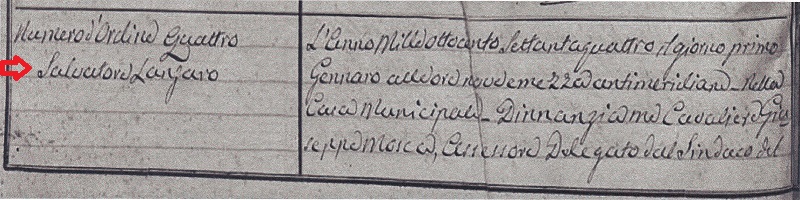 Numero d'Ordine Quattro
Salvatore Lanzaro
L'Anno Milleottocento Settantaquattro il giorno primo
Gennaro alle ore nove e mezza antimeridiane - Nella
Casa Municipale - Dinnanzi a me Cavaliere Giu
seppe Mosca, Assessore Delegato dal Sindaco del